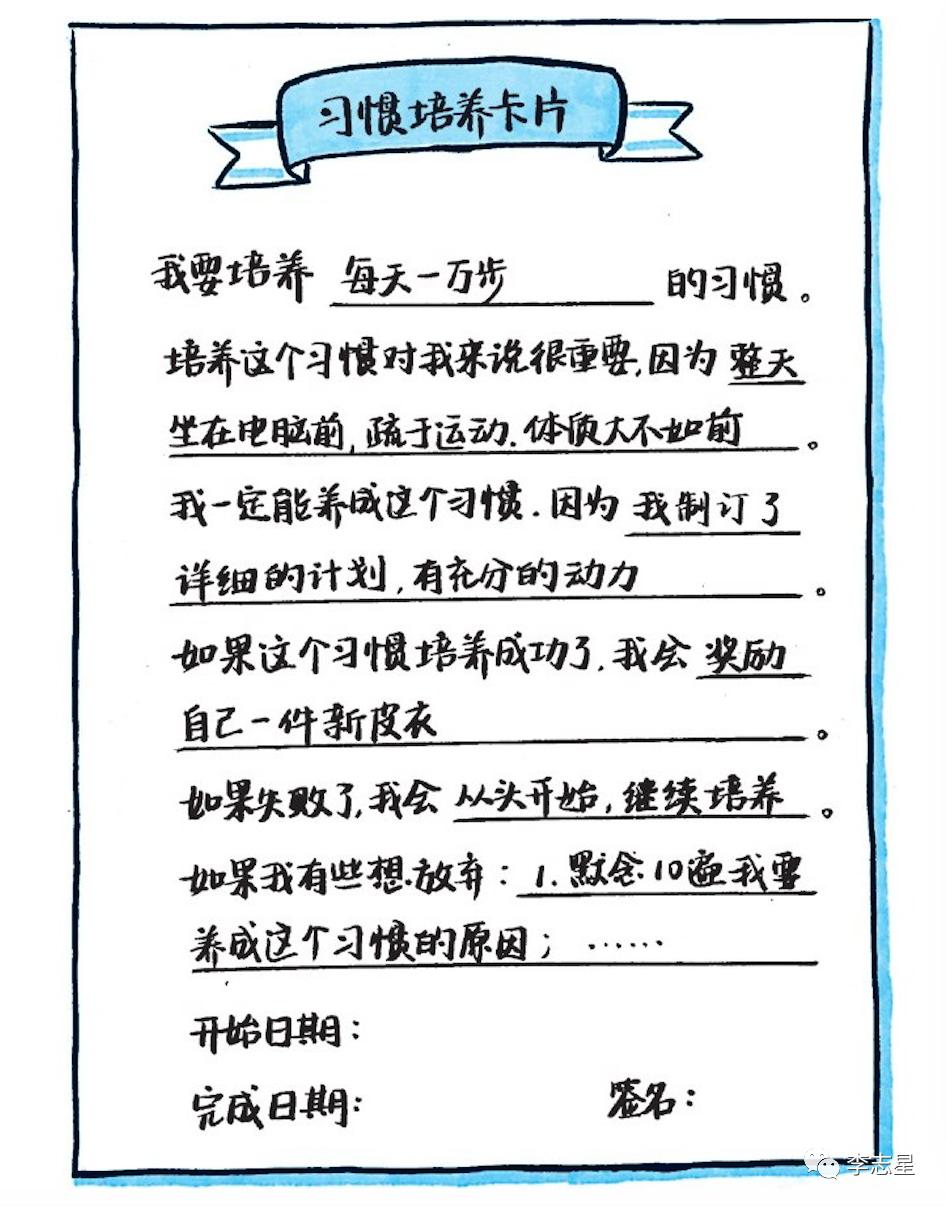 习惯培养卡片
我要培养 每天一万步 的习惯。
培养这个习惯对我来说很重要,因为 整天
坐在电脑前,疏于运动.体质大不如前。
我一定能养成这个习惯.因为 我制订了
详细的计划,有充分的动力。
如果这个习惯培养成功了.我会 奖励
自己一件新皮衣。
如果失败了,我会 从头开始,继续培养。
如果我有些想放弃:1.默念10遍我要
养成这个习惯的原因;……
开始日期:
完成日期: 签名:
李志星